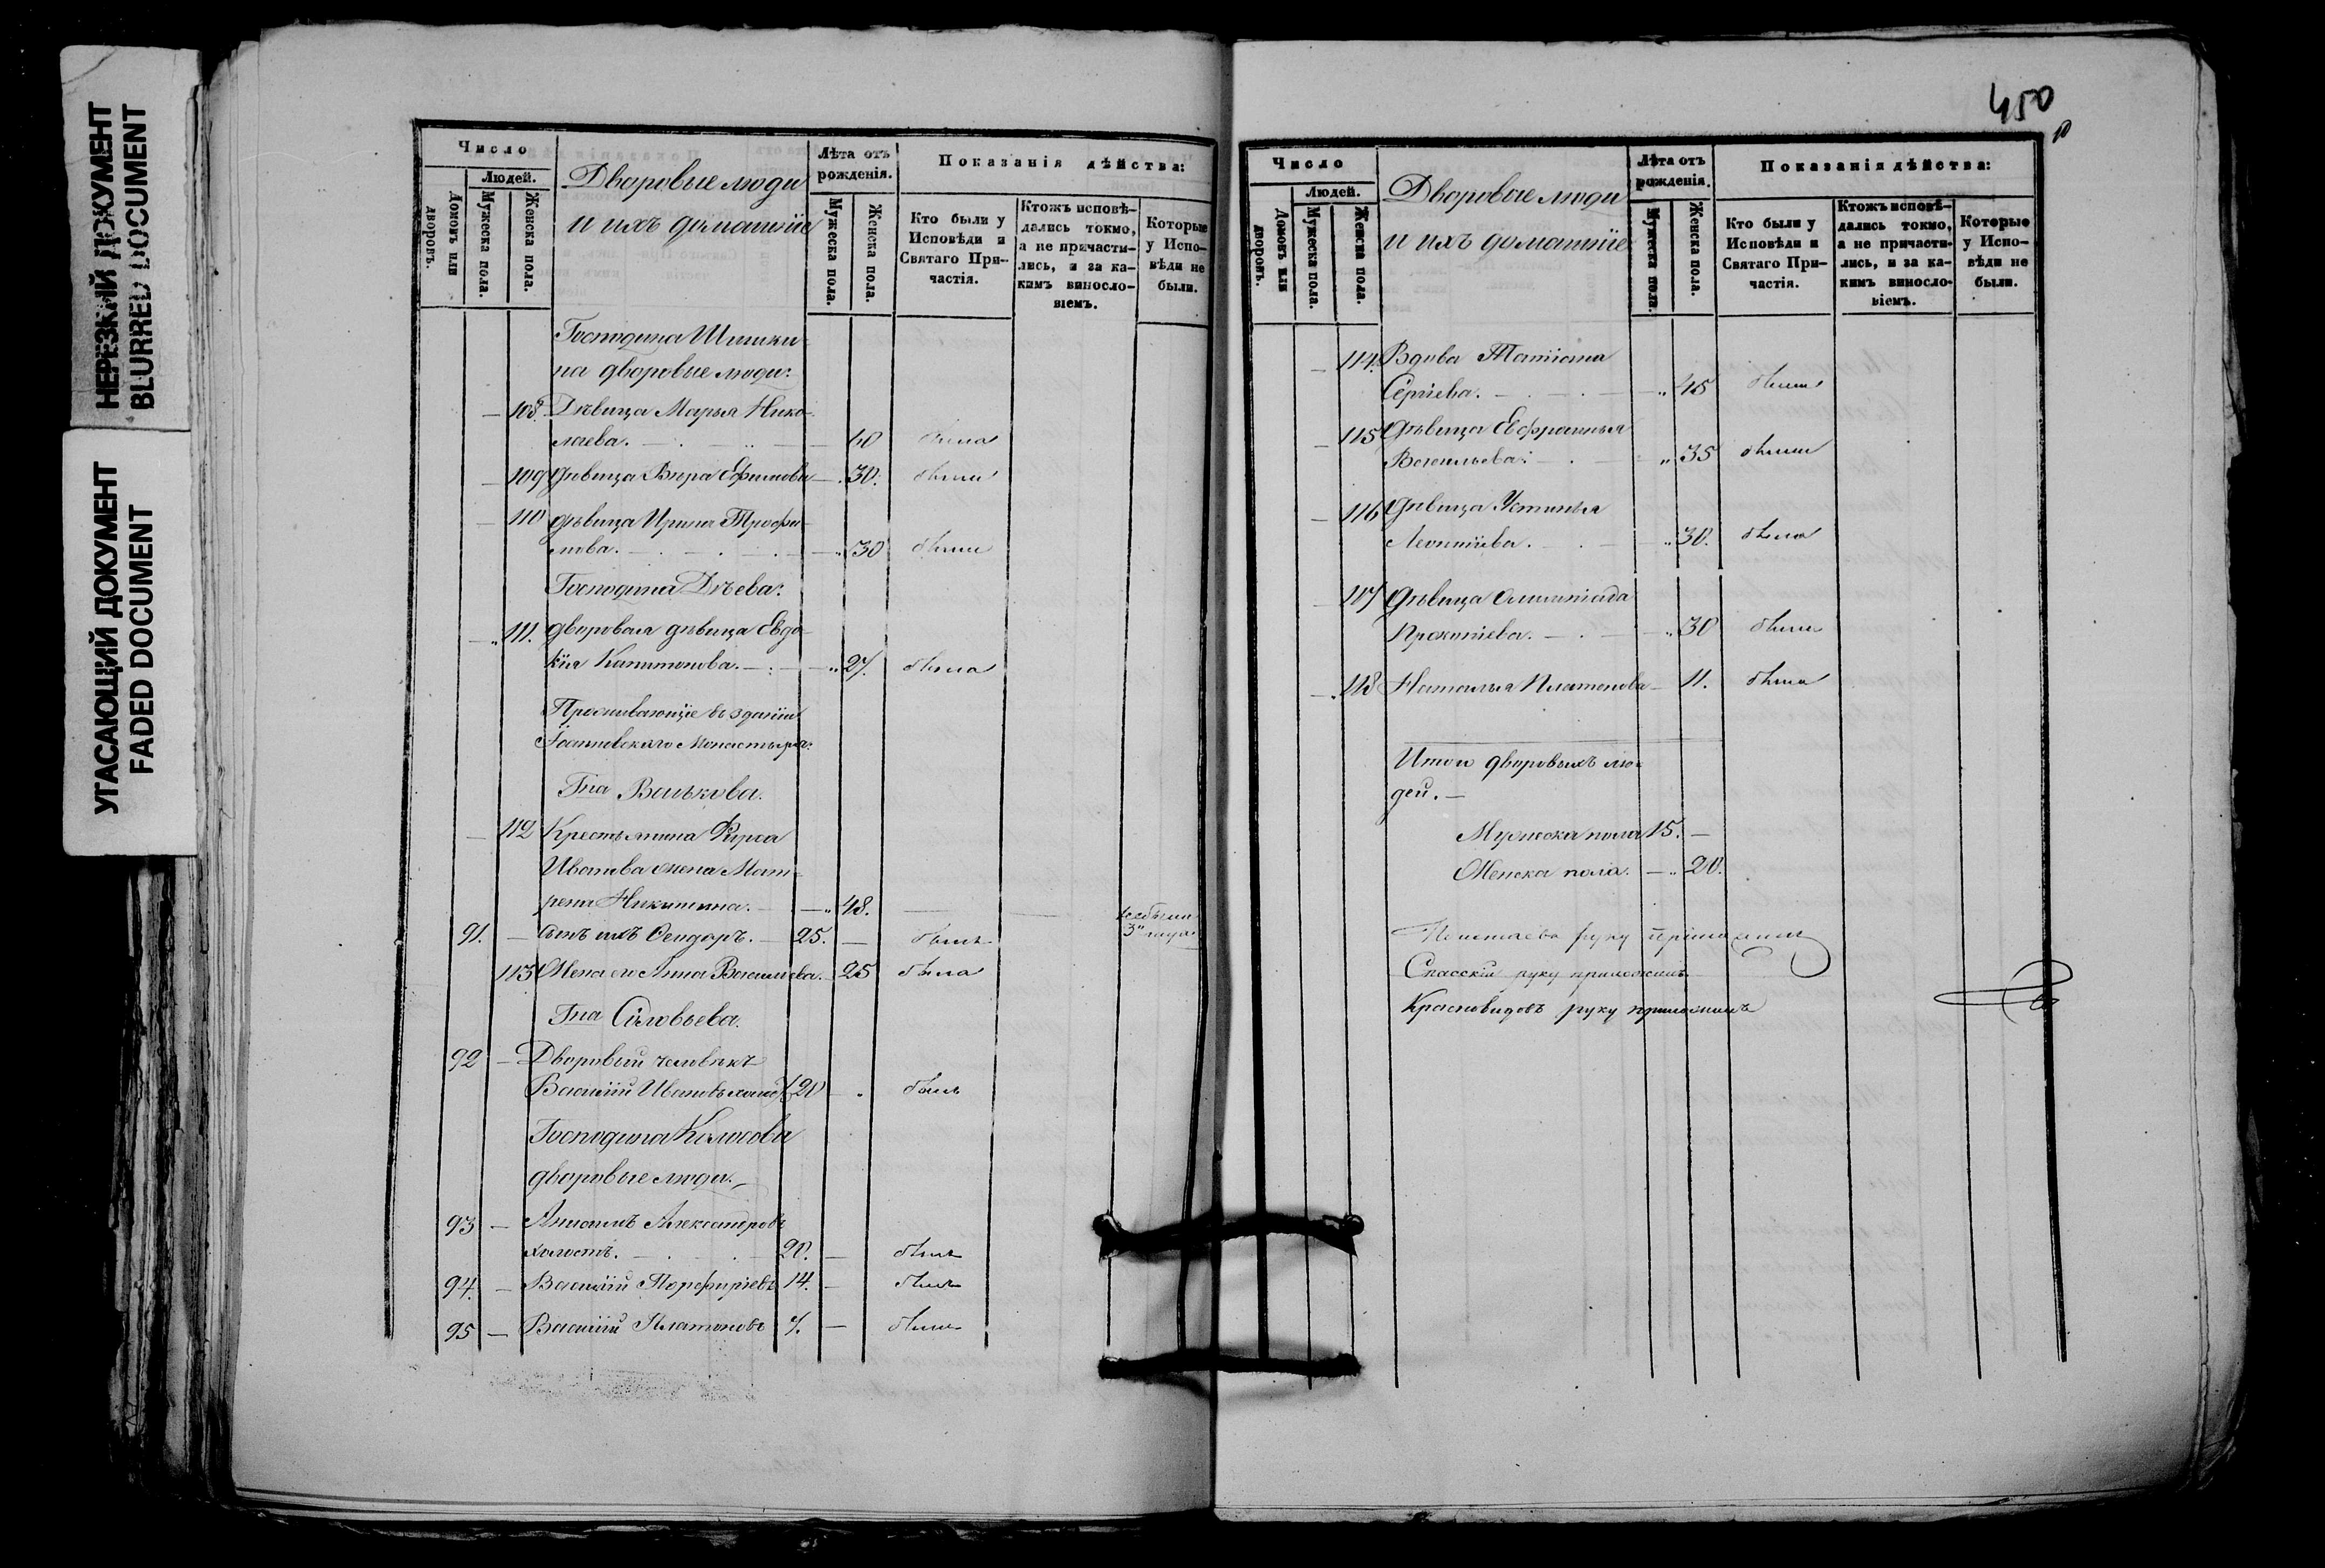 НЕРЕЗКИЙ ДОКУМЕНТ
BLURRED DOCUMENT
УГАСАЮЩИЙ ДОКУМЕНТ
FADED DOCUMENT
Число
Людей.
Домовъ или дворовъ.
Мужеска пола.
Женска пола.
Дворовые люди
и ихъ домашніе
Лѣта отъ рожденія.
Мужеска пола.
Женска пола.
Показанія дѣйства:
Кто были у Исповѣди и Святаго Причастія.
Ктожъ исповѣдались токмо, а не причастились, и за какимъ винословіемъ.
Которые у Исповѣди не были.
Господина Шишки-
на дворовые люди:
— 108. Дѣвица Марья Нико-
лаева. — 40 была
— 109 Дѣвица Вѣра Ефимова — 30. была
— 110 дѣвица Ирина Трофи-
мова. — 30 была
Господина Дѣева:
— 111. дворовая дѣвица Евдо-
кія Капитонова. — 27. была
Проживающіе въ зданіи
Іоанновскаго Монастыря:
Гна Волькова.
— 112 Крестьянина Фирса
Иванова жена Мат-
рена Никитина. — 48. —
91. — Сынъ ихъ Ѳеодоръ. — 25. — былъ
113 Жена его Анна Васильева. 25 была
Гна Соловьева.
92 — Дворовый человѣкъ
Василій Ивановъ холос. 20 — былъ
Господина Колосова
дворовые люди. —
93 — Александровъ
холостъ. — 20. — былъ
94. — Василій Порфирьевъ 14. — былъ
95 — Василій Платоновъ 7. — былъ
450
Число
Людей.
Домовъ или дворовъ.
Мужеска пола.
Женска пола.
Дворовые люди
и ихъ домашніе
Лѣта отъ рожденія.
Мужеска пола.
Женска пола.
Показанія дѣйства:
Кто были у Исповѣди и Святаго Причастія.
Ктожъ исповѣдались токмо, а не причастились, и за какимъ винословіемъ.
Которые у Исповѣди не были.
— 114. Вдова Татіана
Сергіева. — 45 была
— 115 Дѣвица Евфросинья
Васильева: — 35 была
— 116 Дѣвица Устинья
Леонтіева. — 30. была
— 117 Дѣвица Олимпіада
Прокопіева. — 30 была
— 118 Наталья Платонова — 11. была
Итого дворовыхъ лю-
дей. —
Мужеска пола 15. —
Женска пола. — 20.
руку приложилъ
Спасскій руку приложилъ
Красновидовъ руку приложилъ